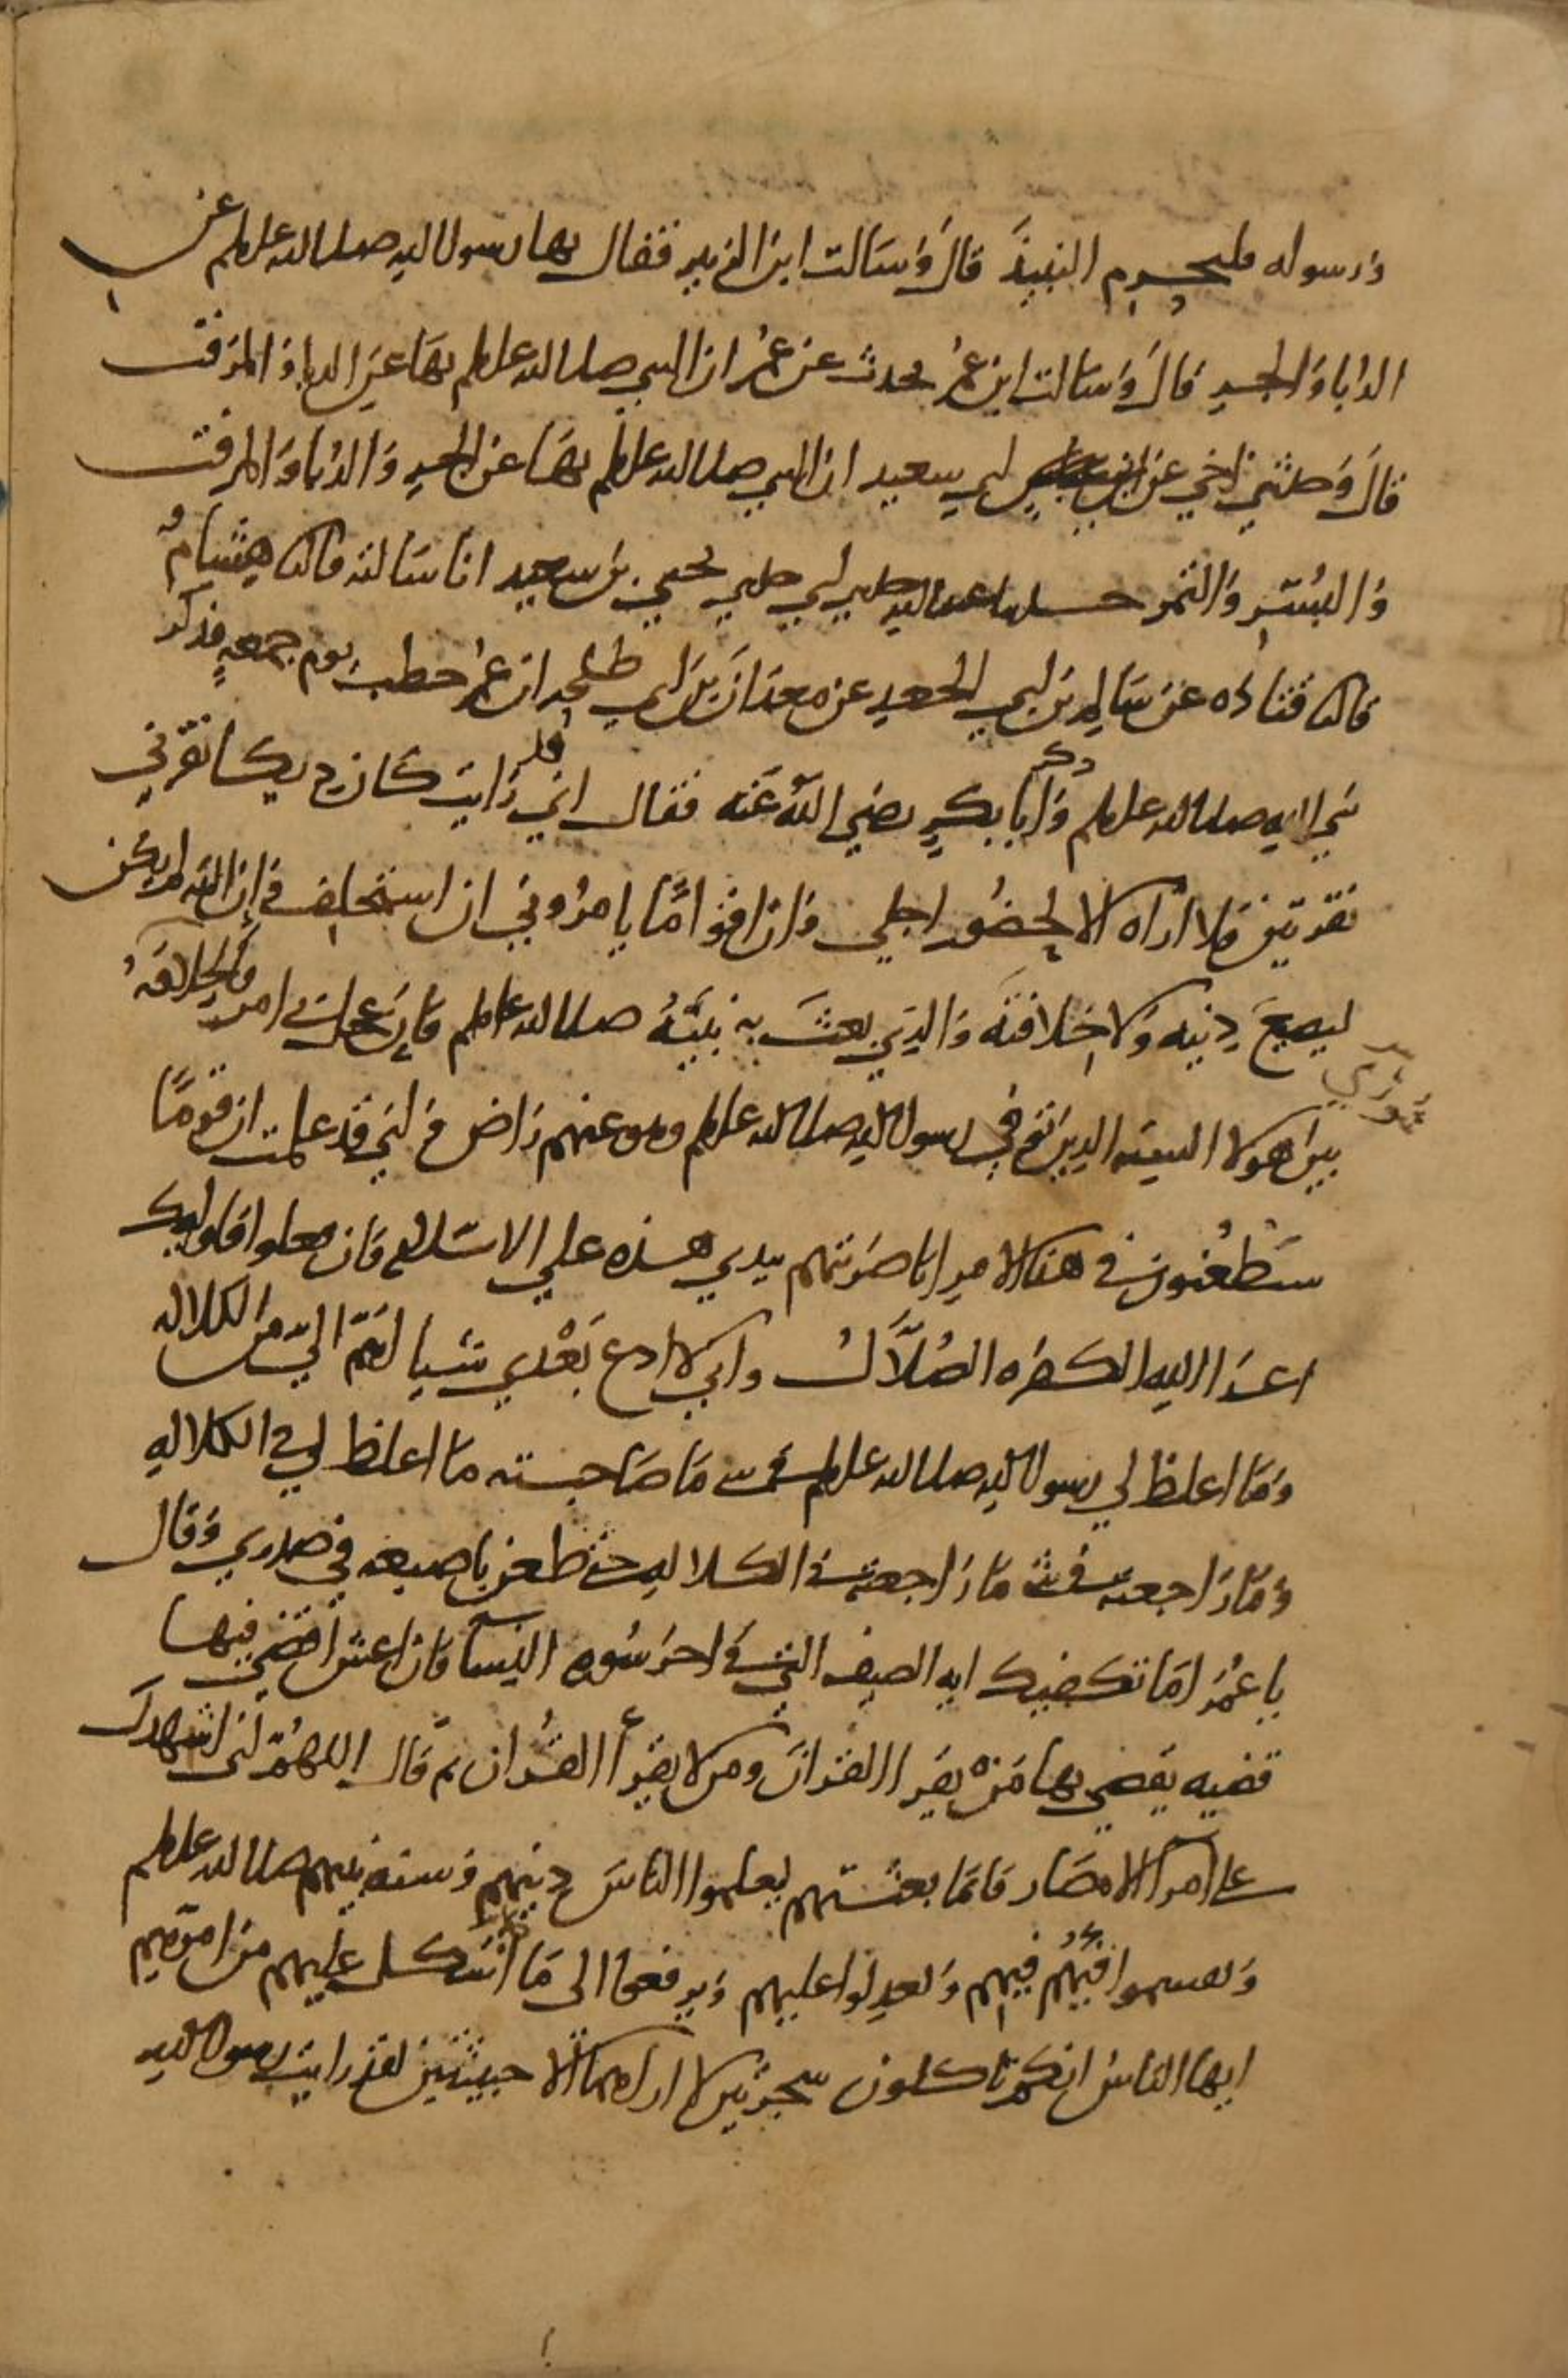 ورسوله فليحرم النبيذ قال وسالت ابن الزبير فقال نها رسول الله صلى الله عليه وسلم عن
الدبا والجر قال وسالت ابن عمر يحدث عن عمر ان النبي صلى الله عليه وسلم نها عن الدبا والمزفت
قال وحدثني اخي عن ابي سعيد ان النبي صلى الله عليه وسلم نها عن الجر والدبا والمزفت
والبسر والتمر حدثنا عبد الله حدثني ابي حدثني يحيى بن سعيد انا سالته قالنا هشام
قالنا قتاده عن سالم بن ابي الجعد عن معدان بن ابي طلحه ان عمر خطب يوم جمعه فذكر
نبي الله صلى الله عليه وسلم وذكر ابا بكر رضي الله عنه فقال اني قد رايت كان ديكا نقرني
نقرتين ولا اراه الا لحضور اجلي وان اقواما يامروني ان استخلف وان الله لم يكن
ليضيع دينه ولا خلافته والذي بعث به نبيه صلى الله عليه وسلم فان عجل بي امر فالخلافه شورى
بين هولا السته الذين توفي رسول الله صلى الله عليه وسلم وهو عنهم راض واني قد علمت ان قوما
سيطعنون في هذا الامر انا ضربتهم بيدي هذه على الاسلام فان فعلوا فاوليك
اعدا الله الكفره الضلال واني لا ادع بعدي شيا اهم الي من الكلاله
وما اغلظ لي رسول الله صلى الله عليه وسلم في شي ما صاحبته ما اغلظ لي في الكلاله
وما راجعته في شي ما راجعته في الكلاله حتى طعن باصبعه في صدري وقال
يا عمر اما تكفيك ايه الصيف التي في اخر سوره النسا فان اعش اقضي فيها
قضيه يقضي بها من يقرا القران ومن لا يقرأ القران ثم قال اللهم اني اشهدك
على امرا الامصار فانما بعثتهم ليعلموا الناس دينهم وسنه نبيهم صلى الله عليه وسلم
ويقسموا فيهم فيئهم ويعدلوا عليهم ويرفعوا الي ما اشكل عليهم من امرهم
ايها الناس انكم تاكلون شجرتين لا اراهما الا خبيثتين لقد رايت رسول الله